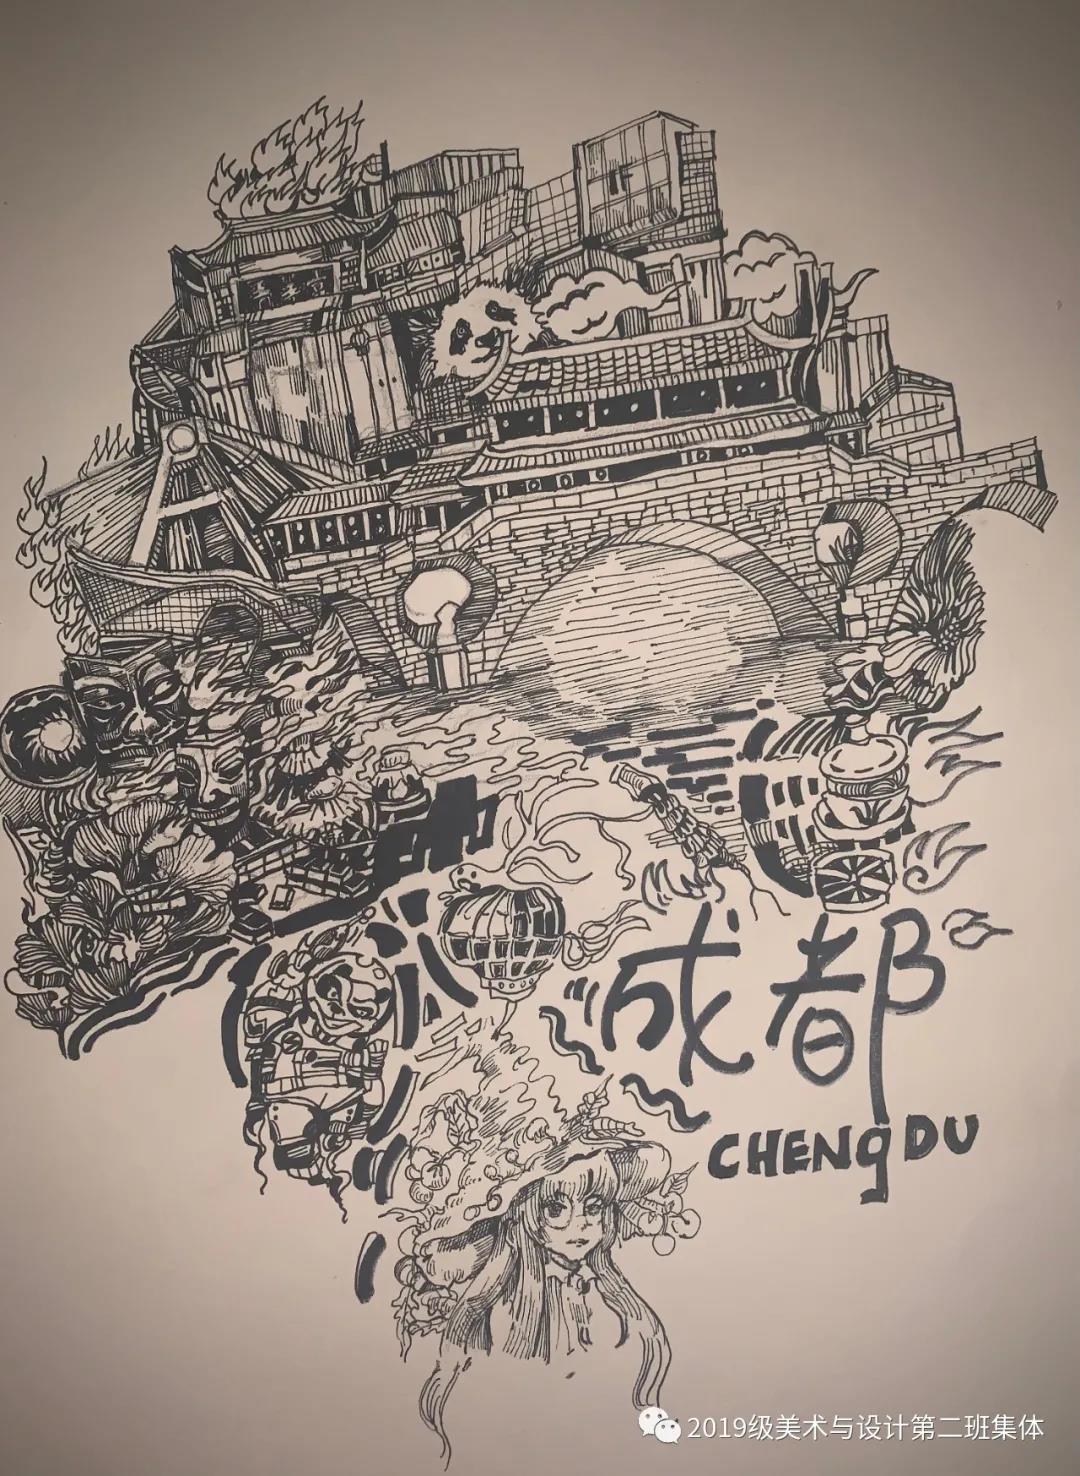 IF
成都
CHENgDU
2019级美术与设计第二班集体